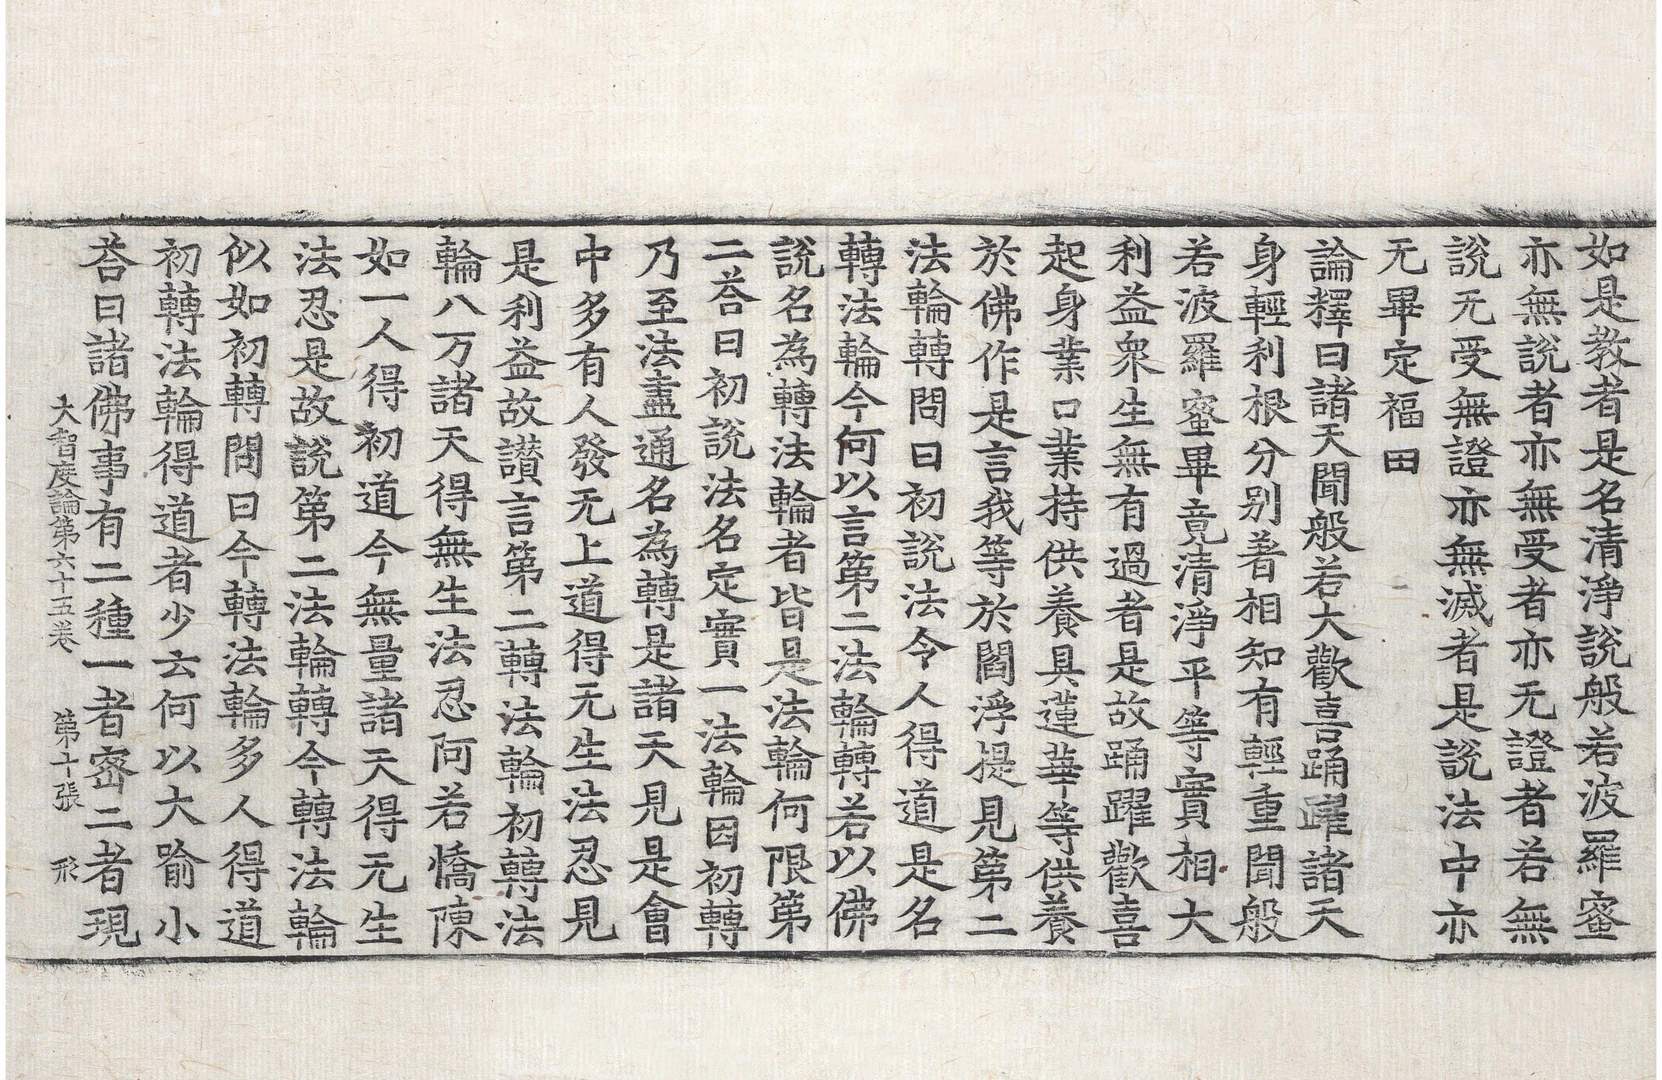 如是教者是名清淨說般若波羅蜜
亦無說者亦無受者亦无證者若無
說无受無證亦無滅者是說法中亦
无畢定福田
論釋曰諸天聞般若大歡喜踊躍諸天
身輕利根分别著相知有輕重聞般
若波羅蜜畢竟清淨平等實相大
利益衆生無有過者是故踊躍歡喜
起身業口業持供養具蓮華等供養
於佛作是言我等於閻浮提見第二
法輪轉問曰初說法令人得道是名
轉法輪今何以言第二法輪轉若以佛
說名為轉法輪者皆是法輪何限第
二荅曰初說法名定實一法輪因初轉
乃至法盡通名為轉是諸天見是會
中多有人發无上道得无生法忍見
是利益故讃言第二轉法輪初轉法
輪八万諸天得無生法忍阿若憍陳
如一人得初道今無量諸天得无生
法忍是故說第二法輪轉今轉法輪
似如初轉問曰今轉法輪多人得道
初轉法輪得道者少云何以大喻小
荅曰諸佛事有二種一者密二者現
大智度論第六十五卷　第十張　形